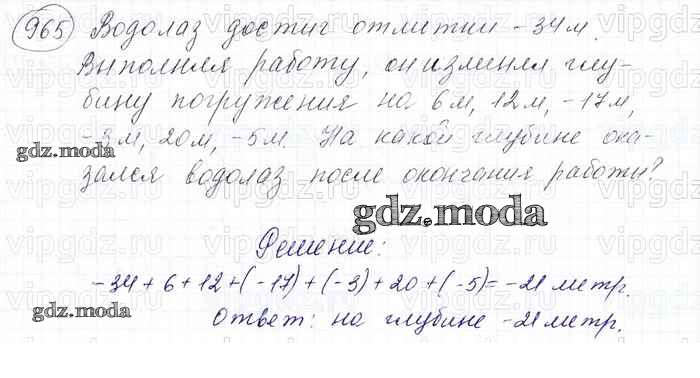 965 Водолаз достиг отметки -34м.
Выполняя работу, он изменял глу-
бину погружения на 6м, 12м, -17м,
-3м, 20м, -5м. На какой глубине ока-
gdz.moda
зался водолаз после окончания работы?
gdz.moda
Решение:
-34 + 6 + 12 + (-17) + (-3) + 20 + (-5) = -21 метр.
gdz.moda
Ответ: на глубине -21 метр.